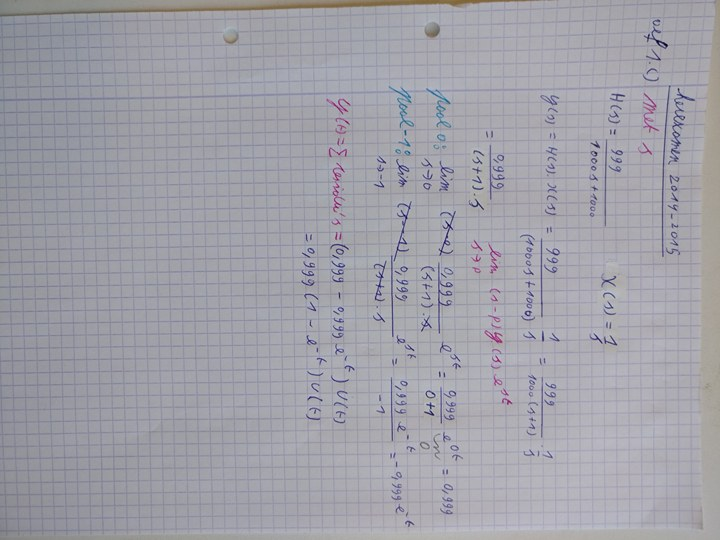 Lesexamen 2014-2015
oef 1.c) met s
H(s) = 999 / 1000s+1000
X(s) = 1/s
Y(s) = H(s).X(s) = 999 / (1000s+1000) 1/s = 999 / 1000(s+1) . 1/s
= 0,999 / (s+1).s
lim s→p (s-p) Y(s) e^st
pool 0: lim s→0 (s-0) 0,999 / (s+1).s e^st = 0,999 / 0+1 e^0t = 0,999
pool -1: lim s→-1 (s-1) 0,999 / (s+1).s e^st = 0,999 e^-t / -1 = -0,999 e^-t
y(t) = Σ residu's = (0,999 - 0,999 e^-t) U(t)
= 0,999 (1 - e^-t) U(t)